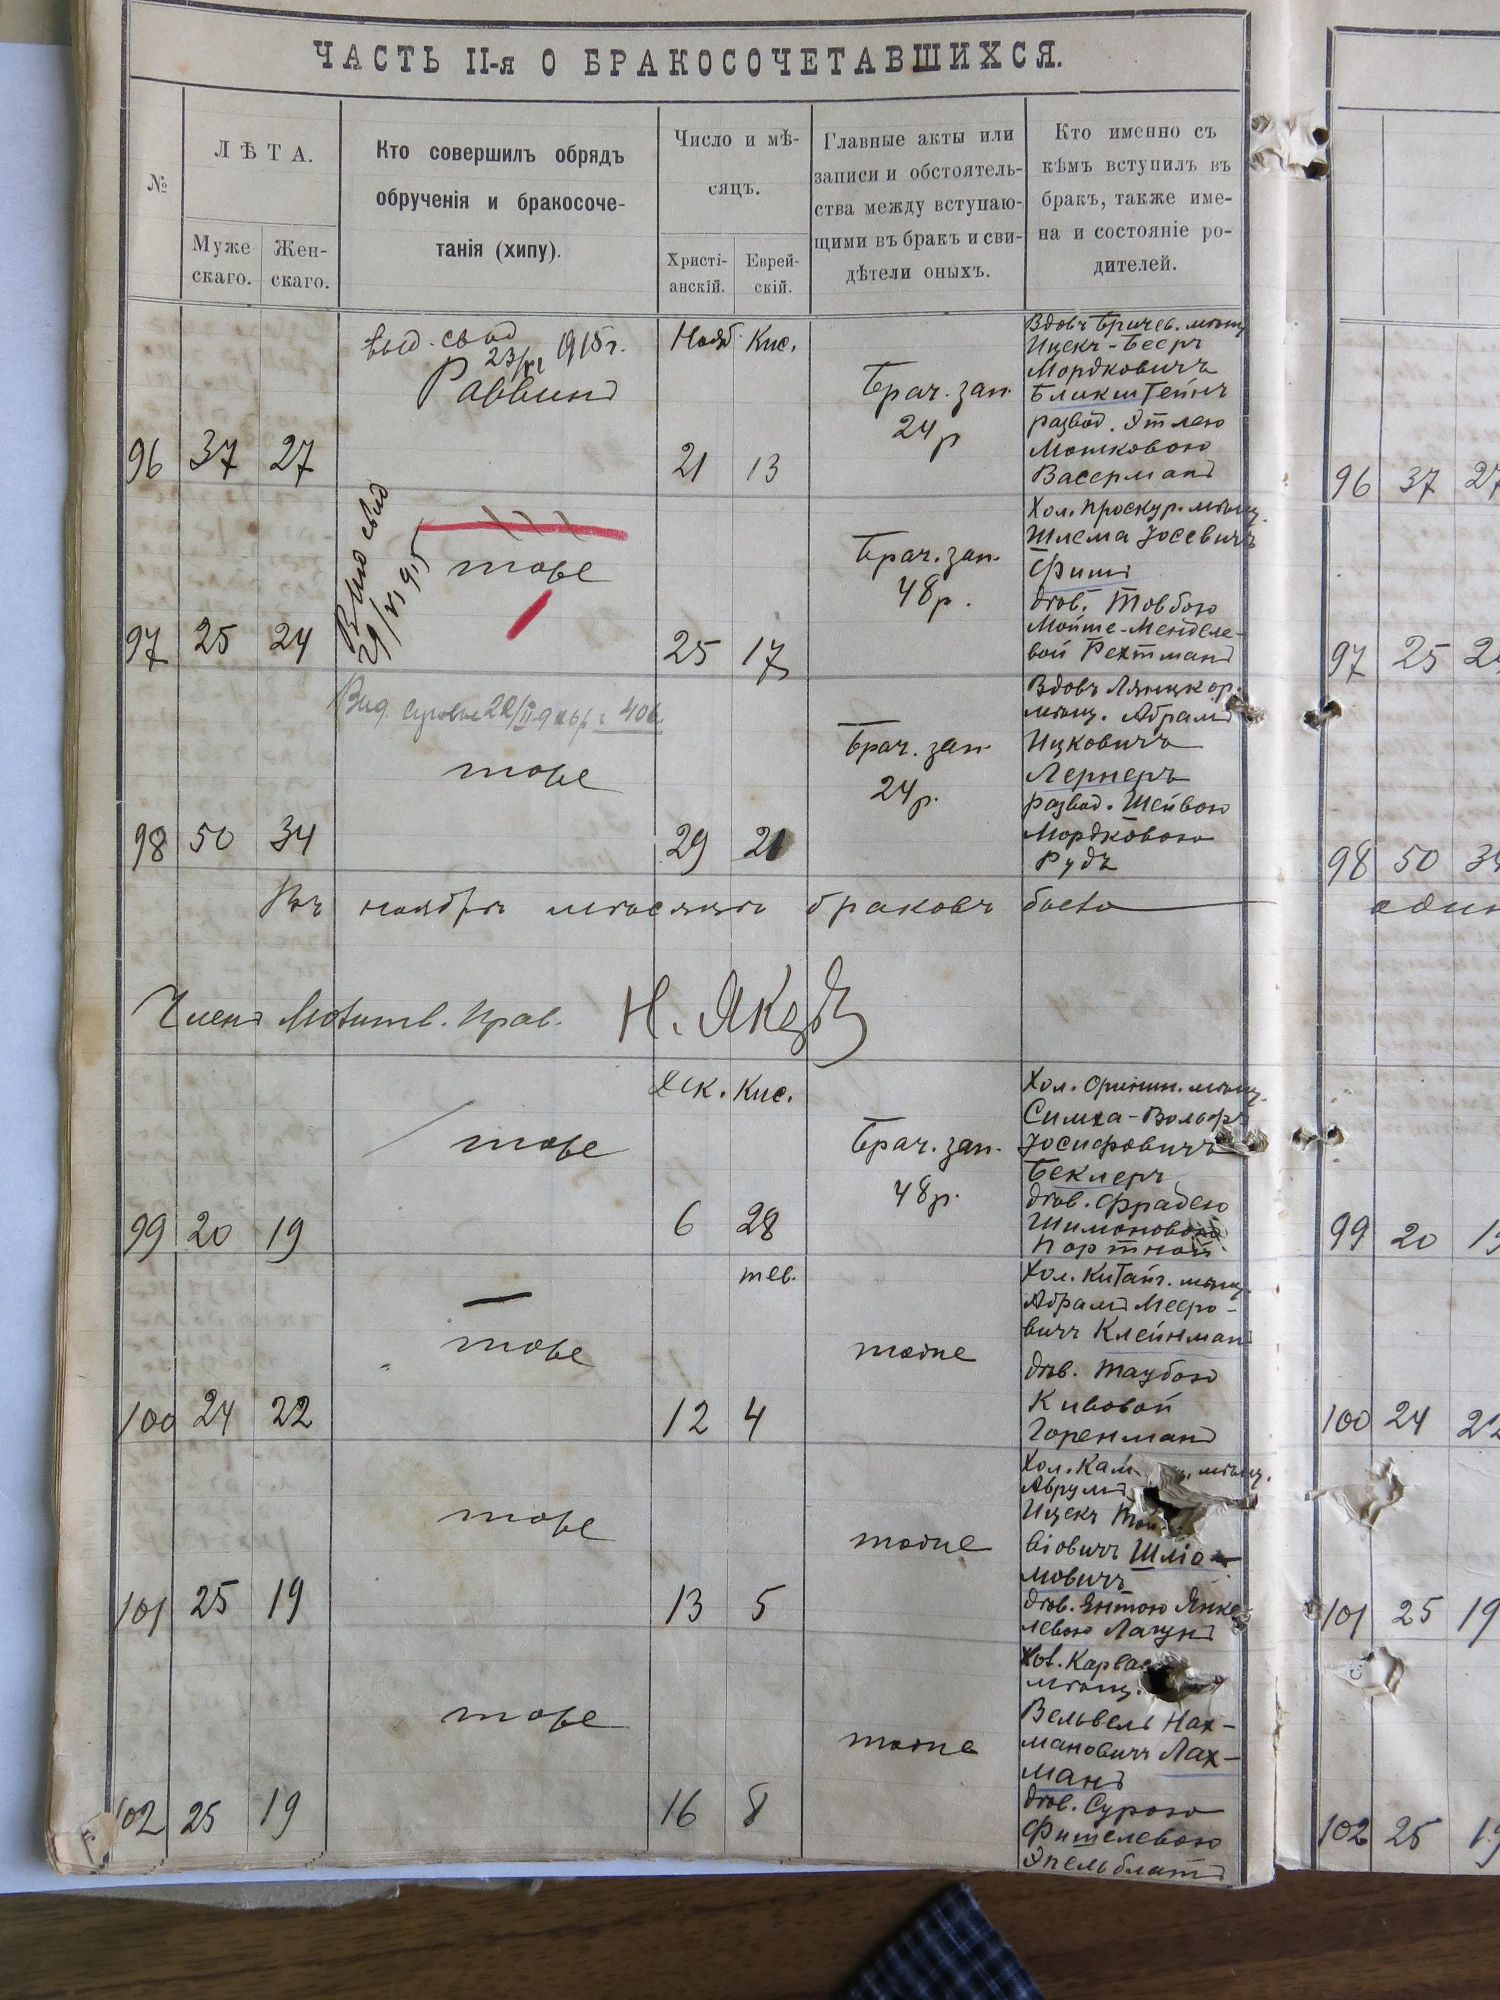 ЧАСТЬ II-я О БРАКОСОЧЕТАВШИХСЯ.
№
ЛѢТА.
Муже
скаго.
Жен-
скаго.
Кто совершилъ обрядъ
обрученія и бракосоче-
танія (хипу).
Число и мѣ-
сяцъ.
Христі-
анскій.
Еврей-
скій.
Главные акты или
записи и обстоятель-
ства между вступаю-
щими въ бракъ и сви-
дѣтели оныхъ.
Кто именно съ
кѣмъ вступилъ въ
бракъ, также име-
на и состояніе ро-
дителей.
96 37 27
выд. свид
23/XI 1915 г.
Раввинъ
Нояб. Кис.
21 13
Брач. зап.
24 р
Вдовъ Бричев. мѣщ.
Ицекъ-Бееръ
Мордковичъ
Бликштейнъ
развод. Этлею
Мошковою
Васерманъ
97 25 24
свид
тоже
25 17
Брач. зап.
48 р.
Хол. Проскур. мѣщ.
Шлема Іосевичъ
Фишъ
дѣв. Товбою
Мойше-Менделе-
вой Рехтманъ
98 50 34
Выд.
тоже
29 21
Брач. зап.
24 р.
Вдовъ Лянцкор.
мѣщ. Абрамъ
Ицковичъ
Лернеръ
развод. Шейвою
Мордковою
Рудъ
Въ ноябрѣ мѣсяцѣ браковъ было
Членъ Молитв. Прав.
99 20 19
тоже
Дек. Кис.
6 28
Брач. зап.
48 р.
Хол. Оринин. мѣщ.
Симха-Вольфъ
Іосифовичъ
Беклеръ
дѣв. Фрадею
Портной
100 24 22
тоже
тев.
12 4
тоже
Хол. Китайг. мѣщ.
Абрамъ Мееро-
вичъ Клейнманъ
дѣв. Таубою
Кивовой
Горенманъ
101 25 19
тоже
13 5
тоже
Хол. Кам мѣщ.
Аврумъ
Ицекъ
віовичъ Шліо-
мовичъ
дѣв. Ентою Янке-
левою Лацунъ
102 25 19
тоже
16 8
тоже
Хол. Карва
мѣщ.
Вельвель Нах-
мановичъ Лах-
манъ
дѣв. Сурою
Фишелевою
Эпельблатъ
96 37 27
97 25
98 50
один
99 20
100 24 22
101 25 19
102 25